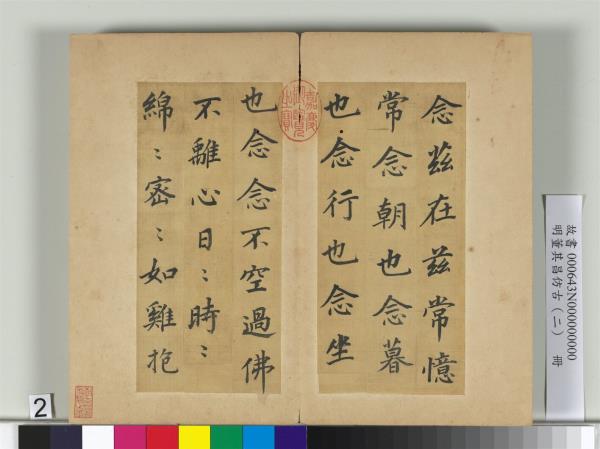 念茲在茲常憶
常念朝也念暮
也念行也念坐
也念念不空過佛
不離心日〻時〻
綿〻密〻如雞抱
嘉慶御覽之寶
故書 000643N000000000
明董其昌仿古(二) 冊
2